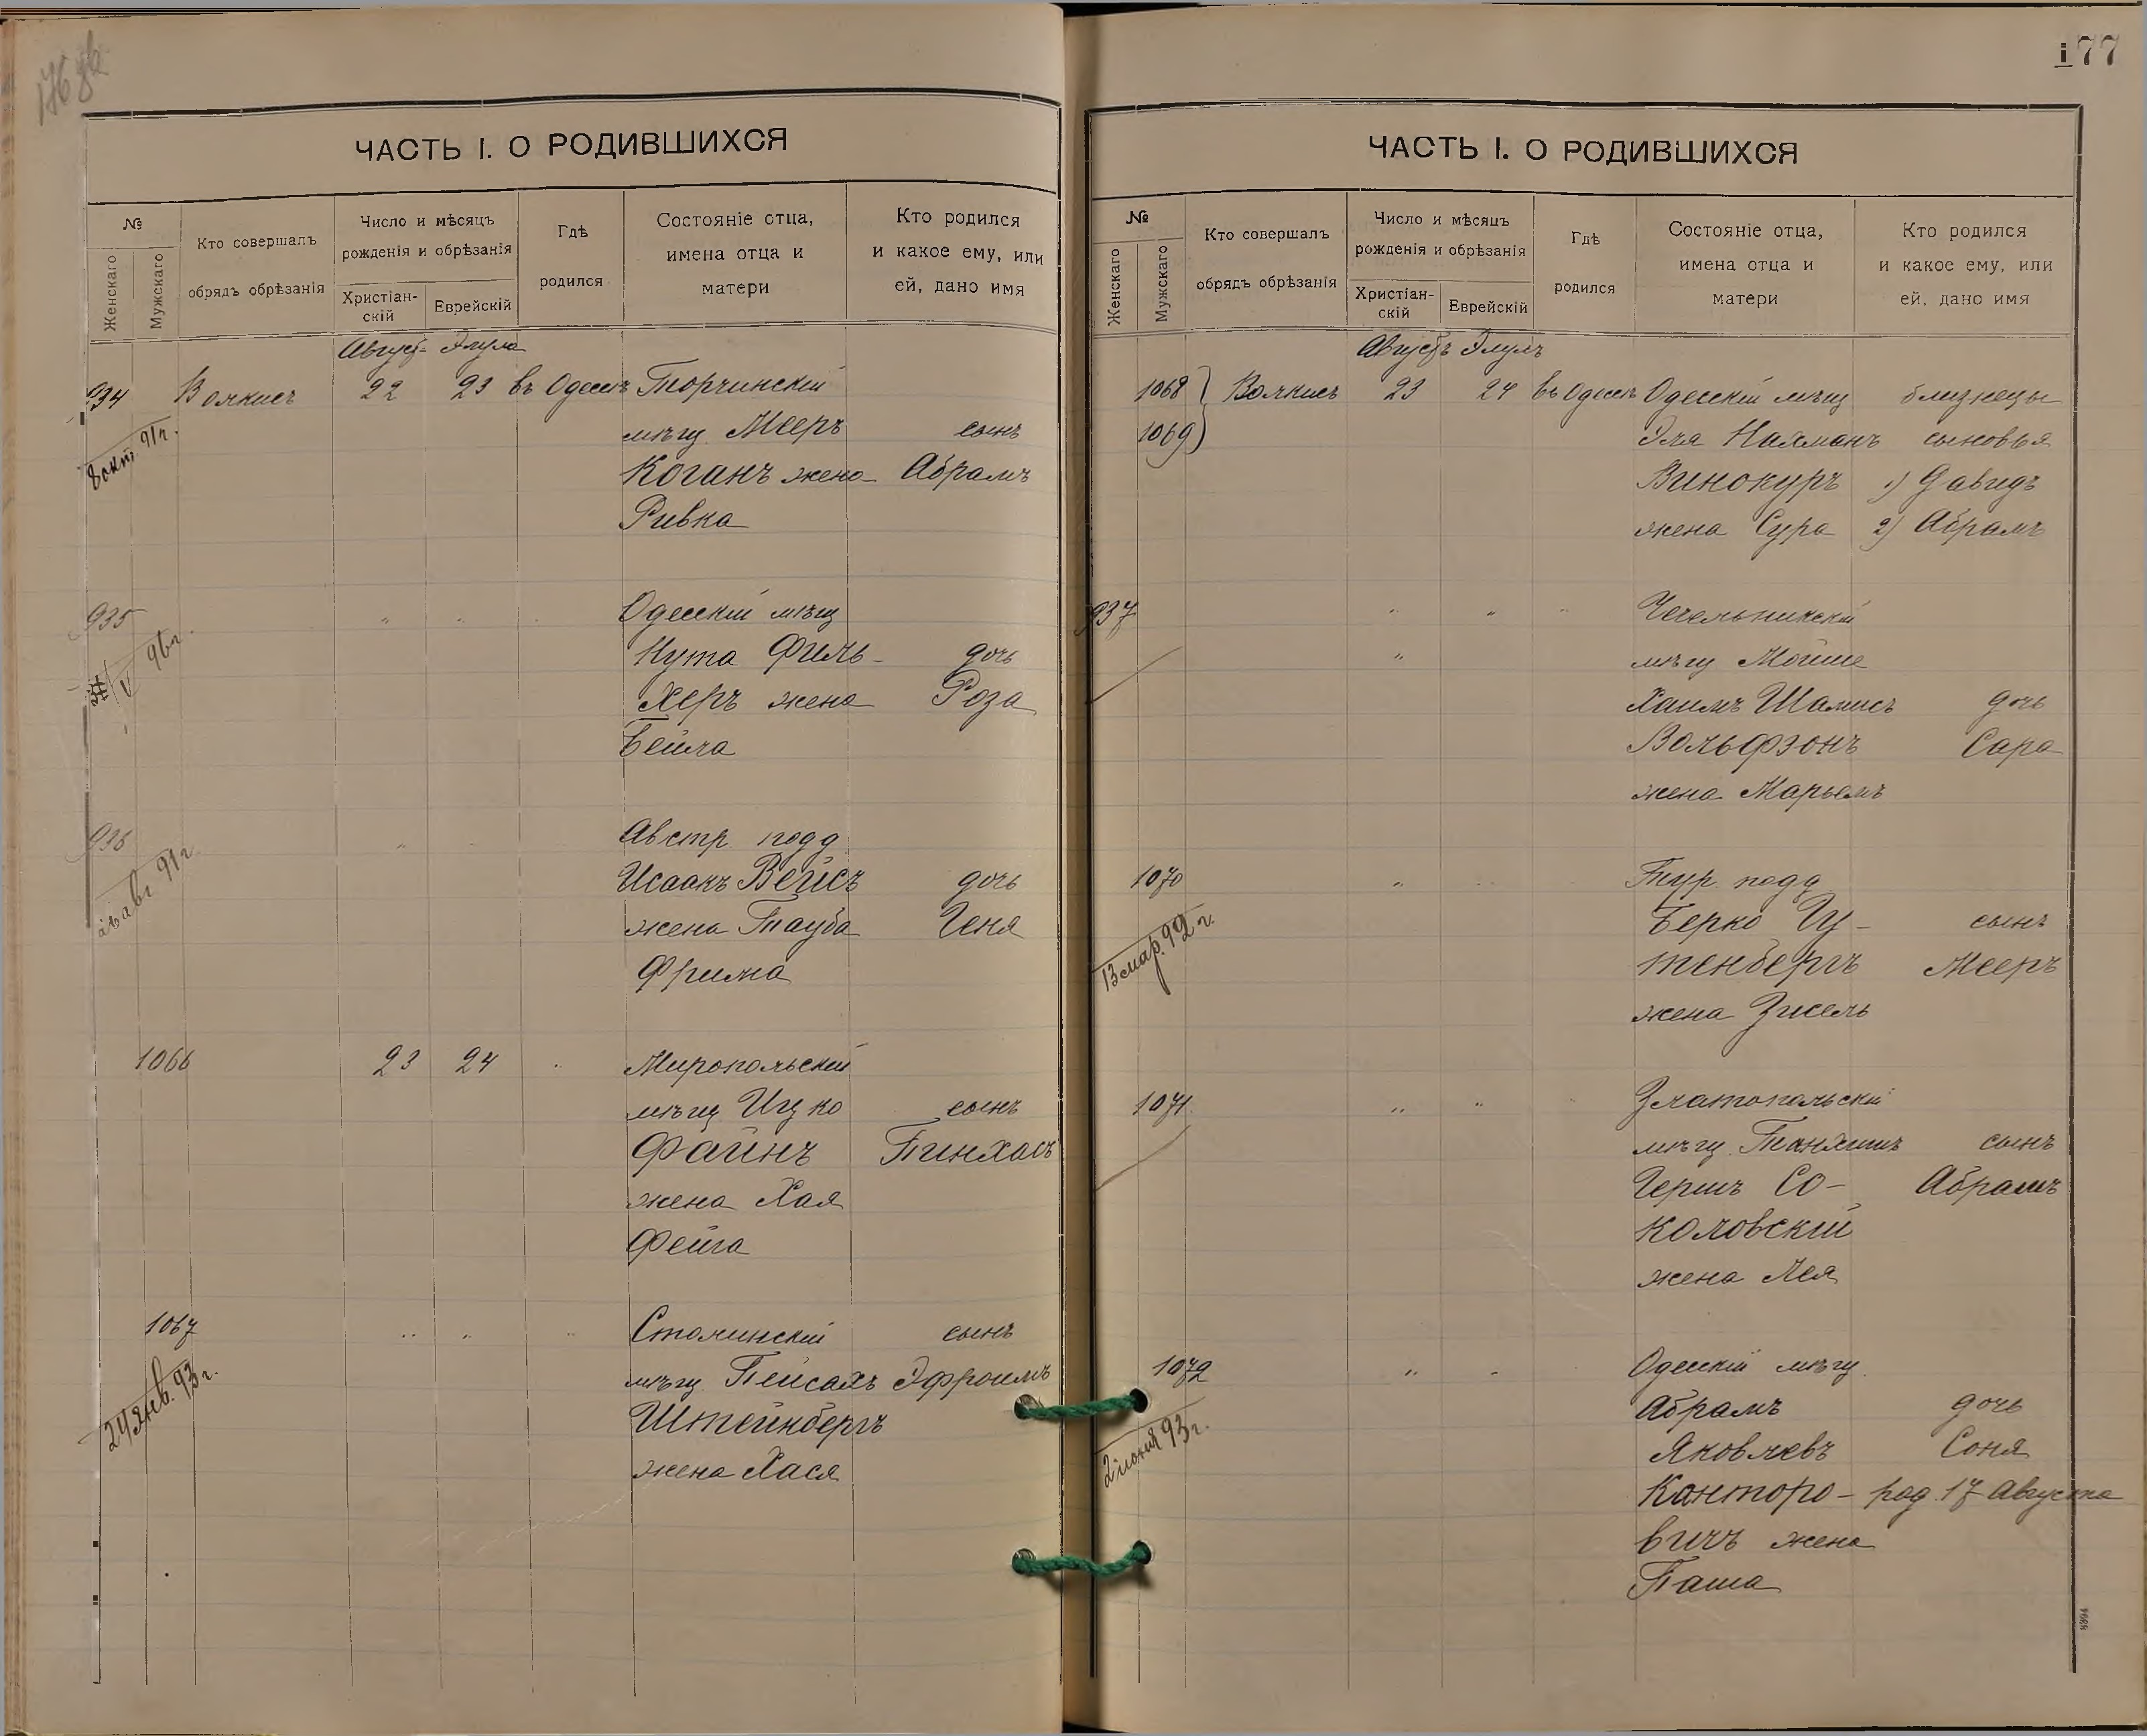 ЧАСТЬ I. О РОДИВШИХСЯ
№
Женскаго
Мужскаго
Кто совершалъ
обрядъ обрѣзанія
Число и мѣсяцъ
рожденія и обрѣзанія
Христіан-
скій
Еврейскій
Гдѣ
родился
Состояніе отца,
имена отца и
матери
Кто родился
и какое ему, или
ей, дано имя
Август Элула
934 Волкисъ 22 23 въ Одессѣ Торчинскій
мѣщ. Мееръ сынъ
8 окт. 91 г.
Коганъ жена Абрамъ
Ривка
935 " " Одесскій мѣщ
Нута Филь- дочь
V 96 г.
херъ жена Роза
Бейла
936 " Австр. подд
Исаакъ Вейсъ дочь
авг 91 г
жена Тауба Геня
Фрима
1066 23 24 Миропольскій
мѣщ Ицко сынъ
Файнъ Пинхасъ
жена Хая
Фейга
1067 " " Столинскій сынъ
мѣщ. Пейсахъ Эфроимъ
24 Янв. 93 г.
Штейнбергъ
жена Хася
177
ЧАСТЬ I. О РОДИВШИХСЯ
№
Женскаго
Мужскаго
Кто совершалъ
обрядъ обрѣзанія
Число и мѣсяцъ
рожденія и обрѣзанія
Христіан-
скій
Еврейскій
Гдѣ
родился
Состояніе отца,
имена отца и
матери
Кто родился
и какое ему, или
ей, дано имя
Августъ Элулъ
1068 } Волкисъ 23 24 въ Одессѣ Одесскій мѣщ близнецы
1069 } Эля Нахманъ сыновья
Винокуръ 1) Давидъ
жена Сура 2) Абрамъ
937 " " Чечельникскій
" мѣщ Мойше
Хаимъ Шамисъ дочь
Вольфзонъ Сара
жена Марьемъ
1070 " Тур. подд
Берко Гу- сынъ
13 мар. 92 г.
тенбергъ Мееръ
жена Зисель
1071 " " Златопольскій
мѣщ. сынъ
Гершъ Со- Абрамъ
коловскій
жена Лея
1072 " Одесскій мѣщ.
Абрамъ дочь
2 июня 93 г.
Яковлевъ Соня
Канторо- род. 17 Августа
вичъ жена
Паша